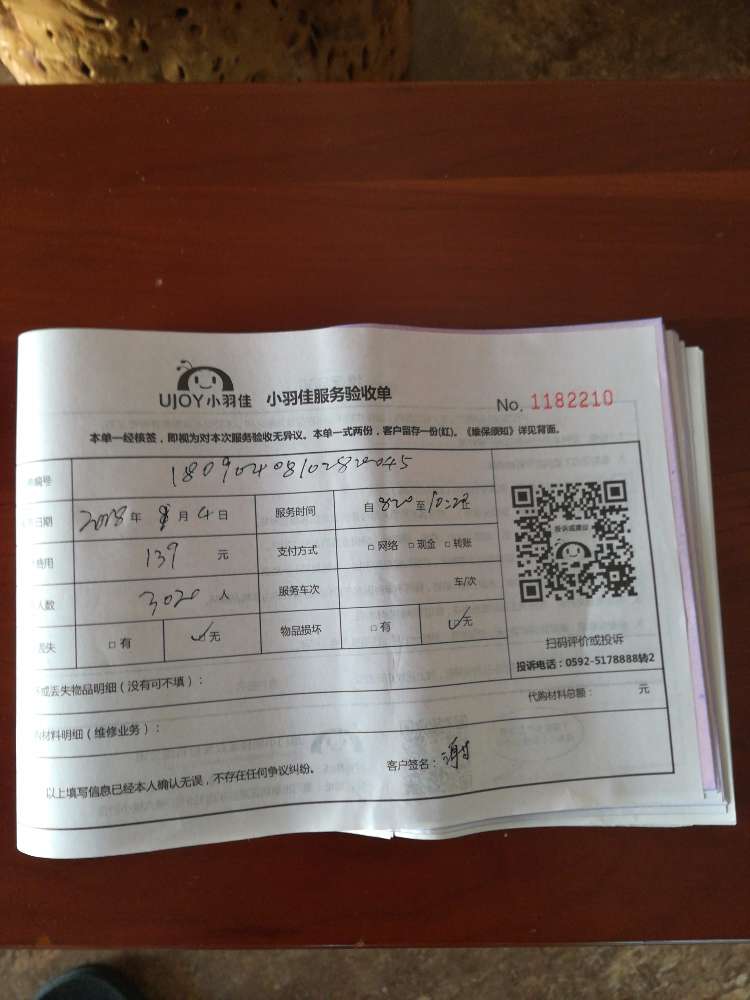 UJOY小羽佳 小羽佳服务验收单 No. 1182210
本单一经核签，即视为对本次服务验收无异议。本单一式两份，客户留存一份(红)。《维保须知》详见背面。
编号 18090408102820045
日期 2018年 9月4日 服务时间 自 820 至 10:20止
费用 139 元 支付方式 □网络 □现金 □转账
人数 3020 人 服务车次 车/次
丢失 □有 ☑无 物品损坏 □有 ☑无
投诉或建议
扫码评价或投诉
投诉电话：0592-5178888转2
或丢失物品明细（没有可不填）： 代购材料总额： 元
材料明细（维修业务）：
以上填写信息已经本人确认无误，不存在任何争议纠纷。 客户签名：谢